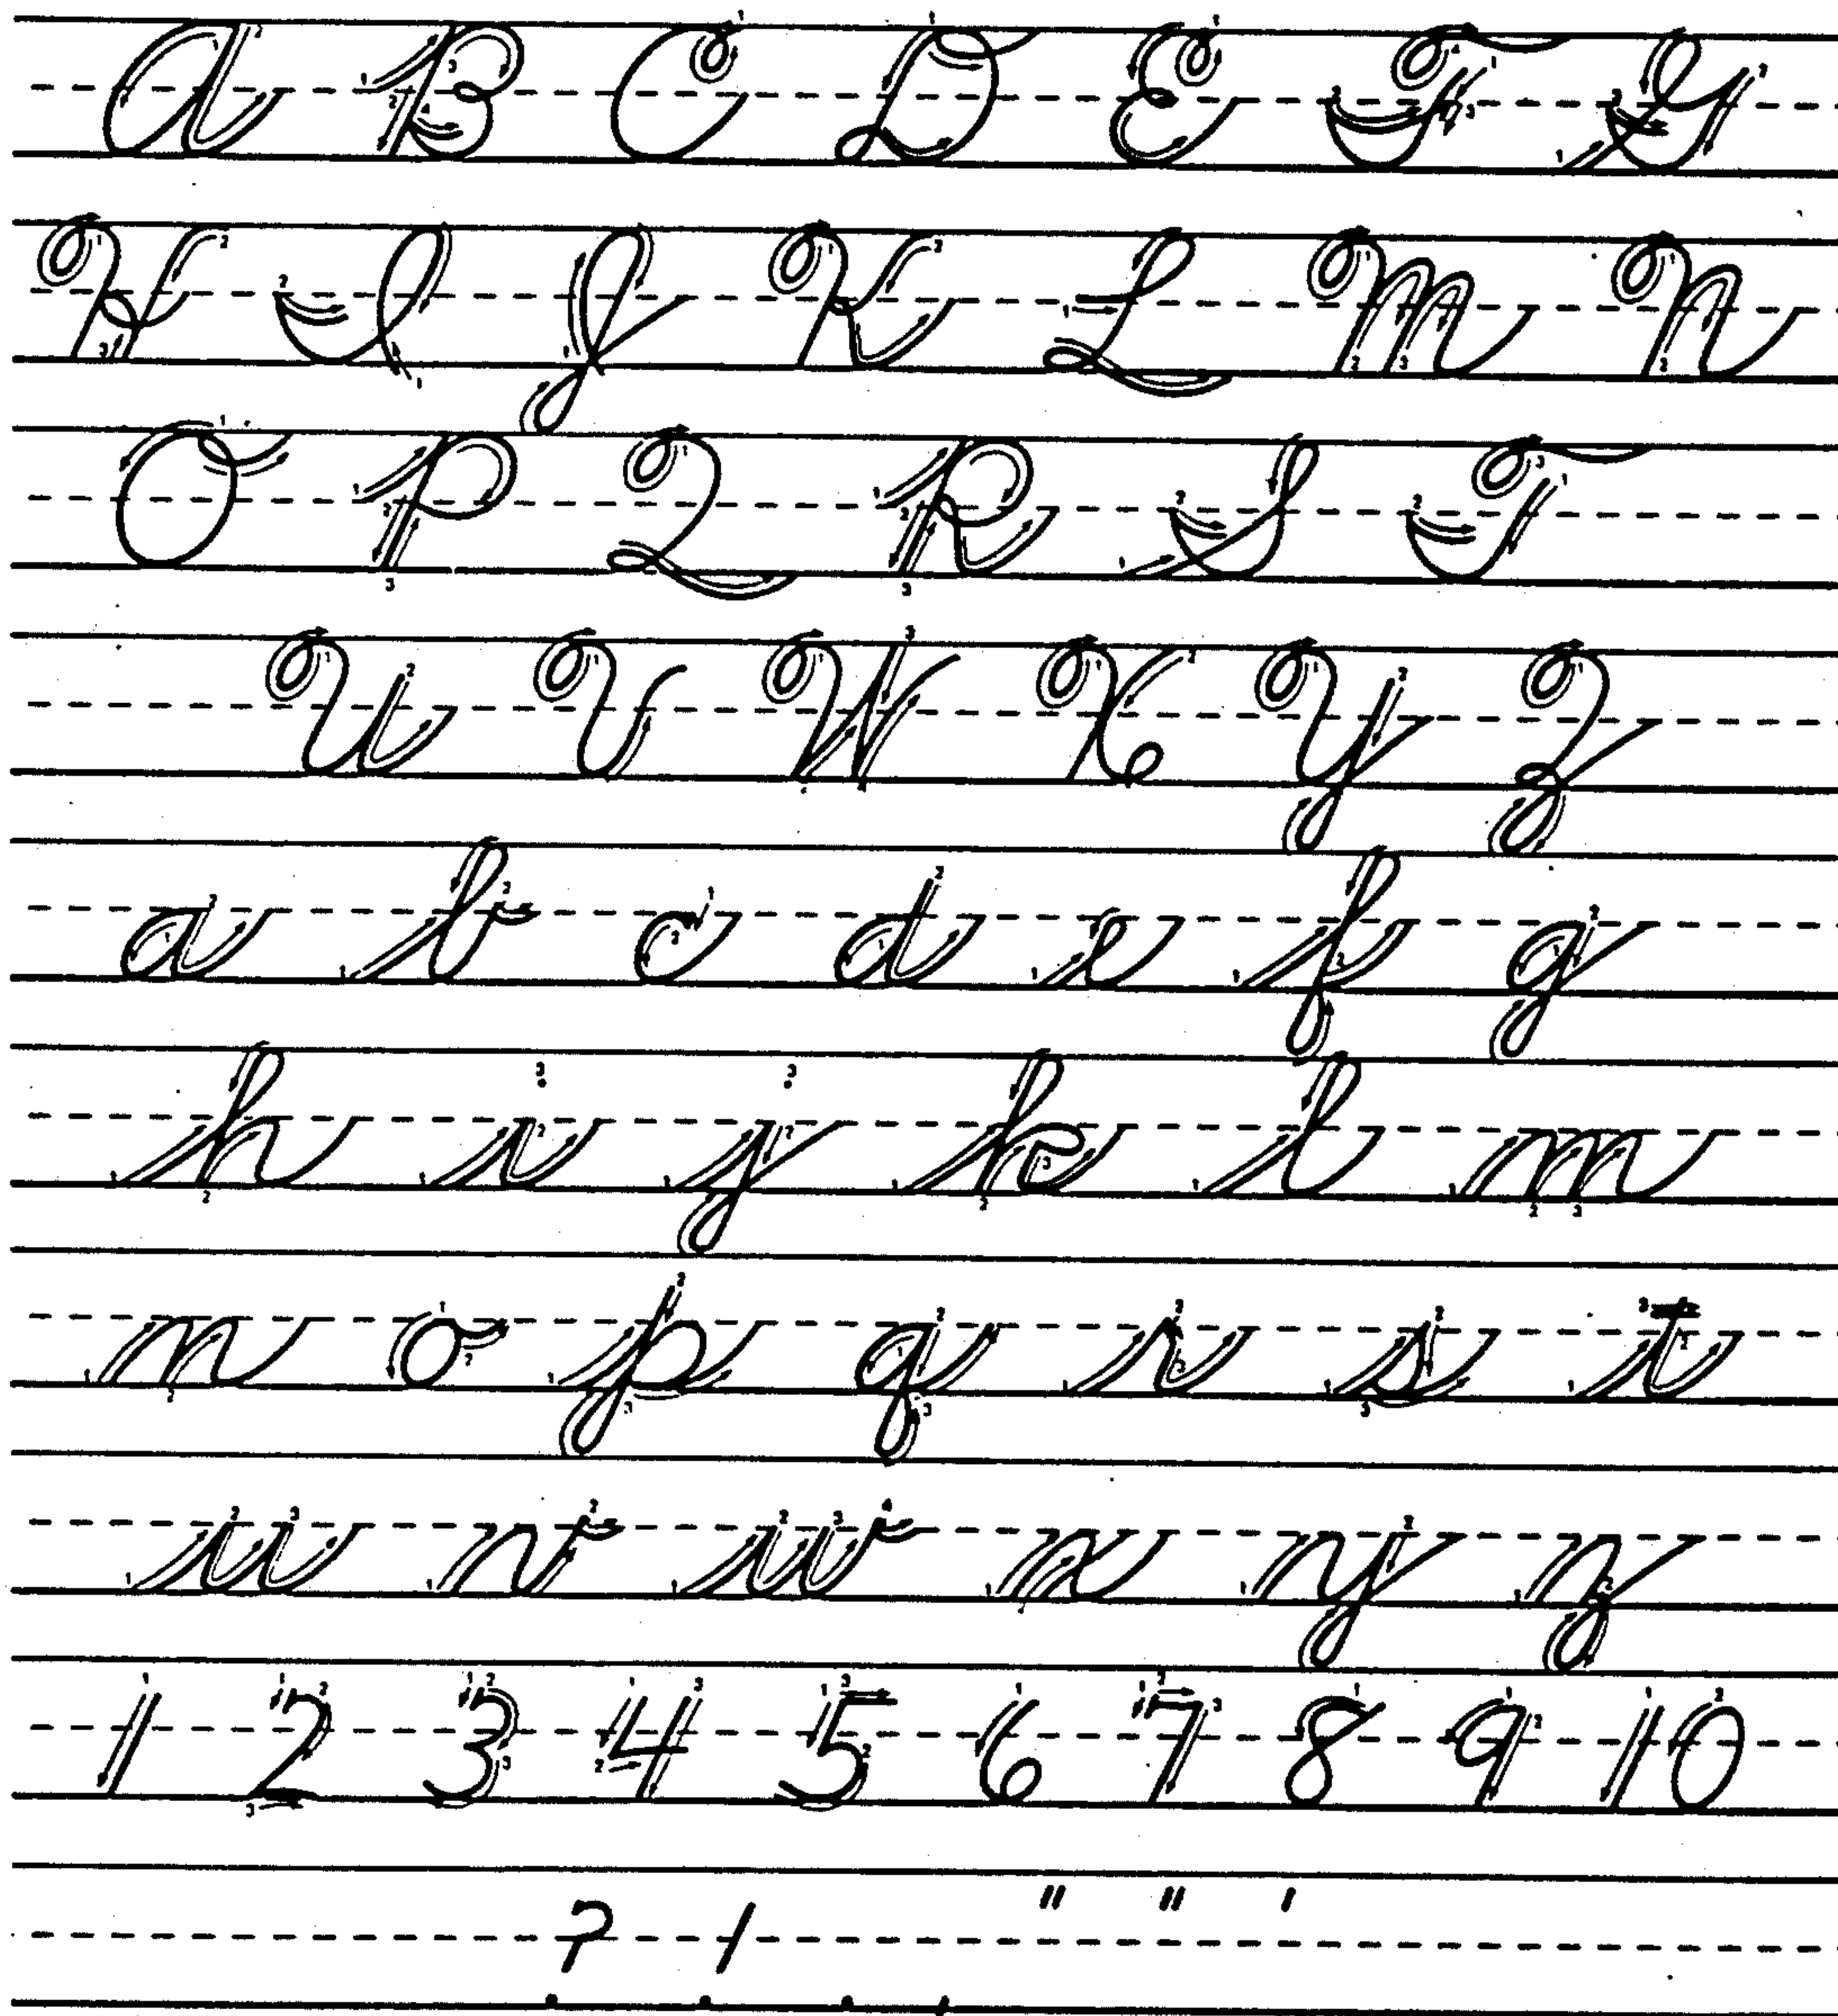 A B C D E F G
H I J K L M N
O P Q R S T
U V W X Y Z
a b c d e f g
h i j k l m
n o p q r s t
u v w x y z
1 2 3 4 5 6 7 8 9 10
? ! . , " " '